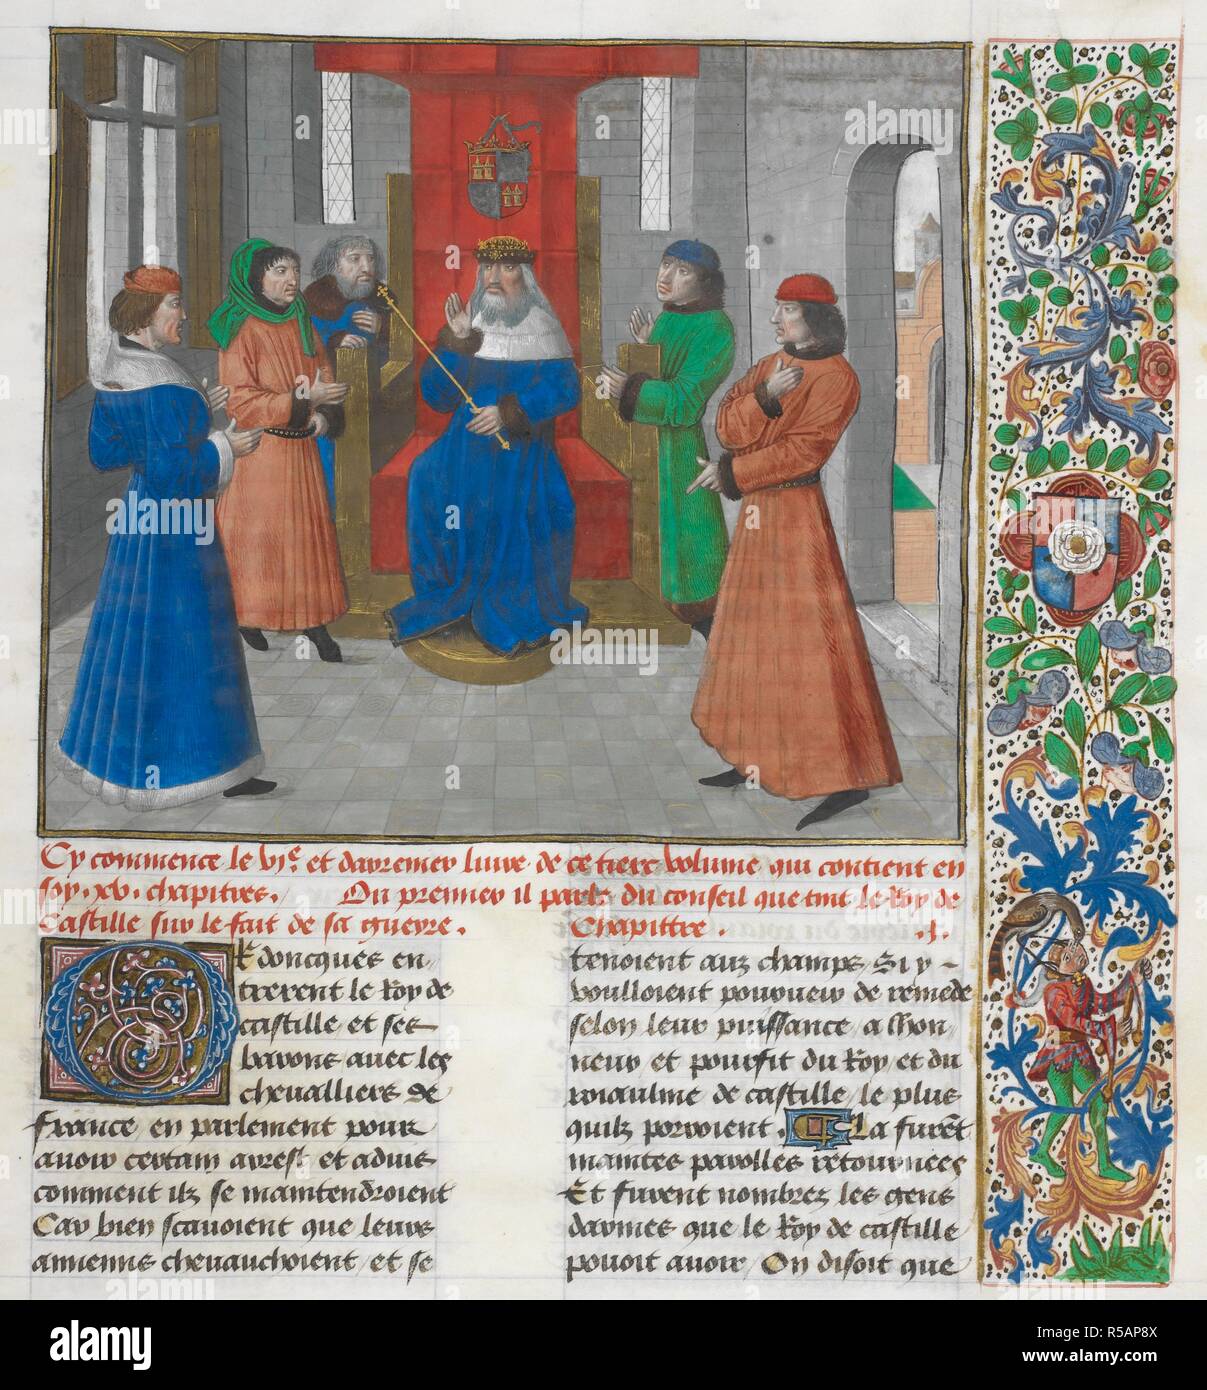 Cy commence le vje et darremer liure de ce tierx volume qui contient en
soy .xv. chapitres. Ou premier il parle du conseil que tint le Roy de
Castille sur le fait de sa guerre. Chapittre .j.
OR doncques en
trerent le Roy de
castille et ses
barons auec les
chevalliers de
france en parlement pour
auoir certain arrest et aduis
comment ilz se maintendroient
Car bien scauoient que leurs
annemis cheuauchoient et se
tenoient aux champs Si y
voulloient pourueir de remede
selon leur puissance a lhon
neur et pourfit du Roy et du
roiaulme de castille le plus
quilz porroient. La furent
maintes parolles retournees
Et furent nombrez les gens
darmes que le Roy de castille
pouoit auoir On disoit que
alamy
Image ID: R5AP8X
www.alamy.com